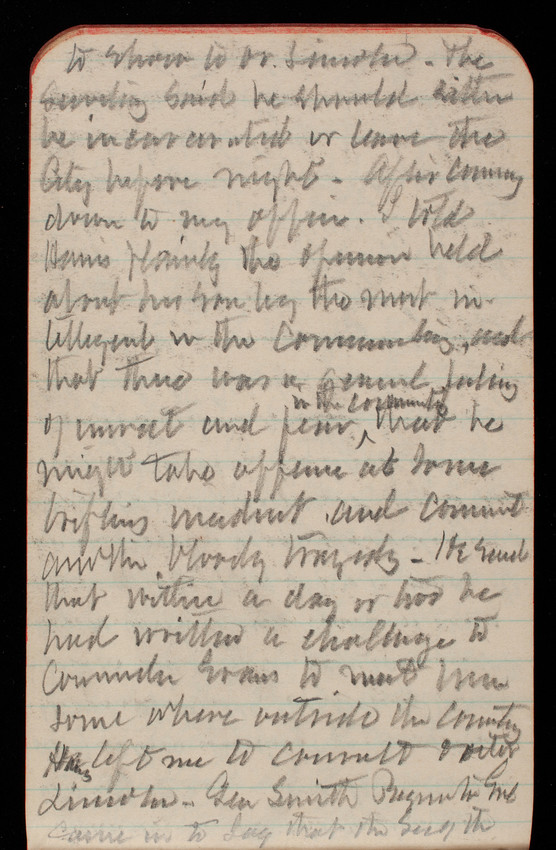 to show to Dr. Lincoln - The
Secretary said he should either
be incarcerated or leave the
City before night - After coming
down to my office. I told
Hains plainly the opinion held
about his son by the most in-
telligent in the community, and
that there was a general feeling
of unrest and fear, in the community that he
might take offense at some
trifling incident and commit
another bloody tragedy - He said
that within a day or two he
had written a challenge to
Commander Evans to meet him
some where outside the country
Hains left me to consult Doctor
Lincoln - Gen Smith
came in to say that the Secy of the